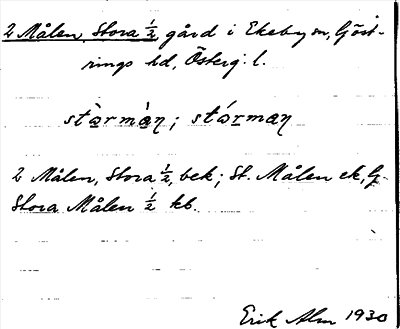 2 Målen, Stora ½, gård i Ekeby sn, Göst-
rings hd, Österg. l.
stòrmàn; stórman
2 Målen, Stora ½, bek; St. Målen ek, G.
Stora Målen ½ kb.
Erik Alm 1930